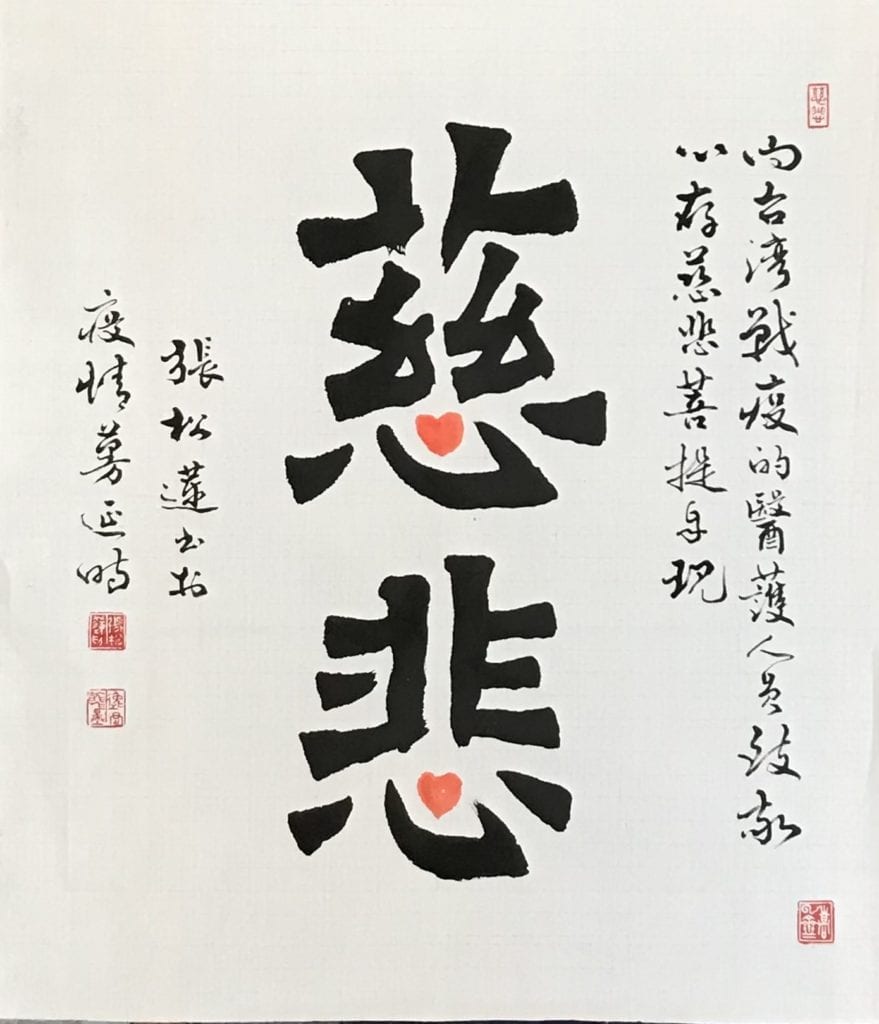 向台湾戰疫的醫護人员致敬
心存慈悲菩提自现
慈悲
張松蓮书於
疫情蔓延時